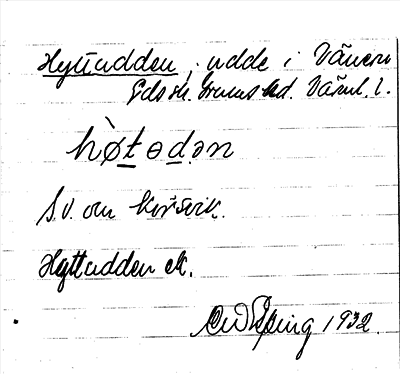 Hyttudden, udde i Vänern
Eds sn. Grums hd. Värml. l.
hø̀tɵdən
S.v. om Korsvik.
Hyttudden ek.
1932.